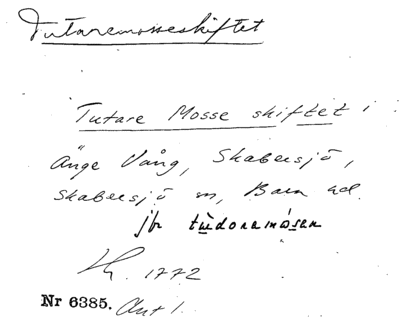 Tutaremosseskiftet
Tutare Mosse skiftet i
Änge Vång, Skabersjö,
Skabersjö sn, Bara hd.
jfr tùdoramósen
1772
Nr 6385. Akt 1.